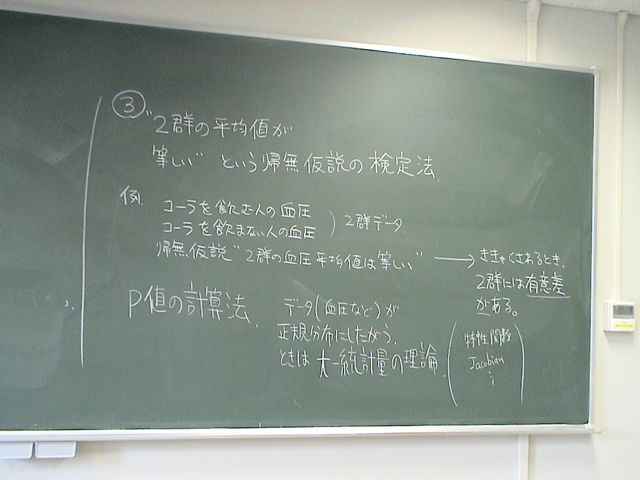 ③ "2群の平均値が
等しい" という帰無仮説の検定法.
例. コーラを飲む人の血圧
コーラを飲まない人の血圧
) 2群データ.
帰無仮説 "2群の血圧平均値は等しい" → ききゃくされるとき.
2群には有意差
がある。
P値の計算法.
データ(血圧など)が
正規分布にしたがう.
ときは 大-統計量の理論.
(特性関数
Jacobian
⋮)